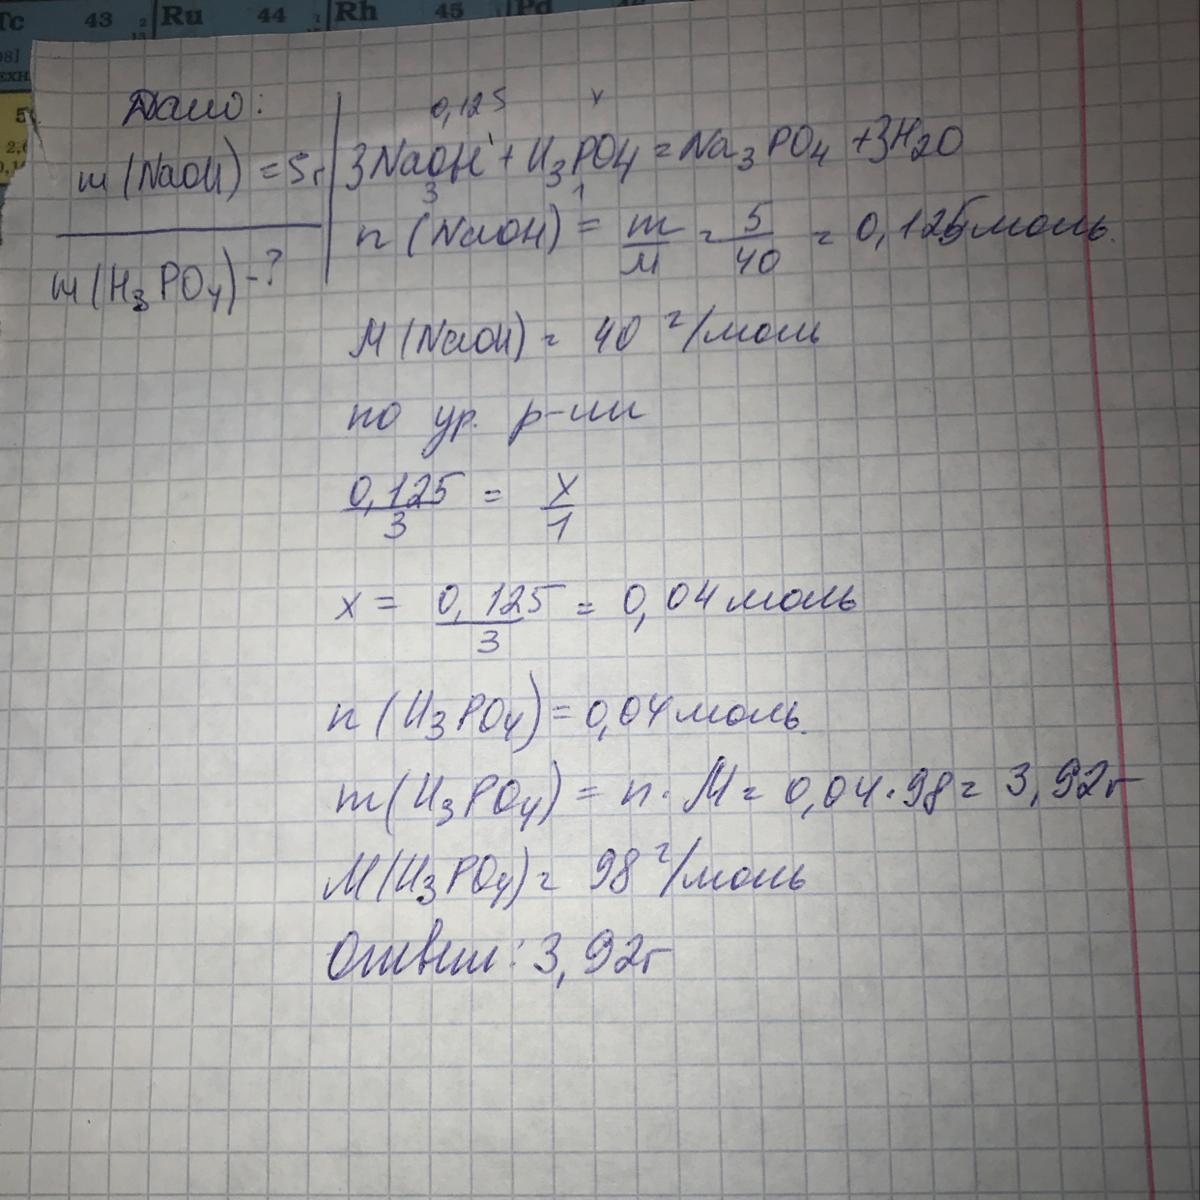 Tc 43 2 Ru 44 Rh 45 Pd 46
Дано:
m(NaOH) = 5г
m(H3PO4) - ?
0,125 x
3NaOH + H3PO4 = Na3PO4 + 3H2O
3 1
n(NaOH) = m/M = 5/40 = 0,125 моль.
M(NaOH) = 40 г/моль
по ур. р-ии
0,125/3 = x/1
x = 0,125/3 = 0,04 моль
n(H3PO4) = 0,04 моль.
m(H3PO4) = n · M = 0,04 · 98 = 3,92г
M(H3PO4) = 98 г/моль
Ответ: 3,92г